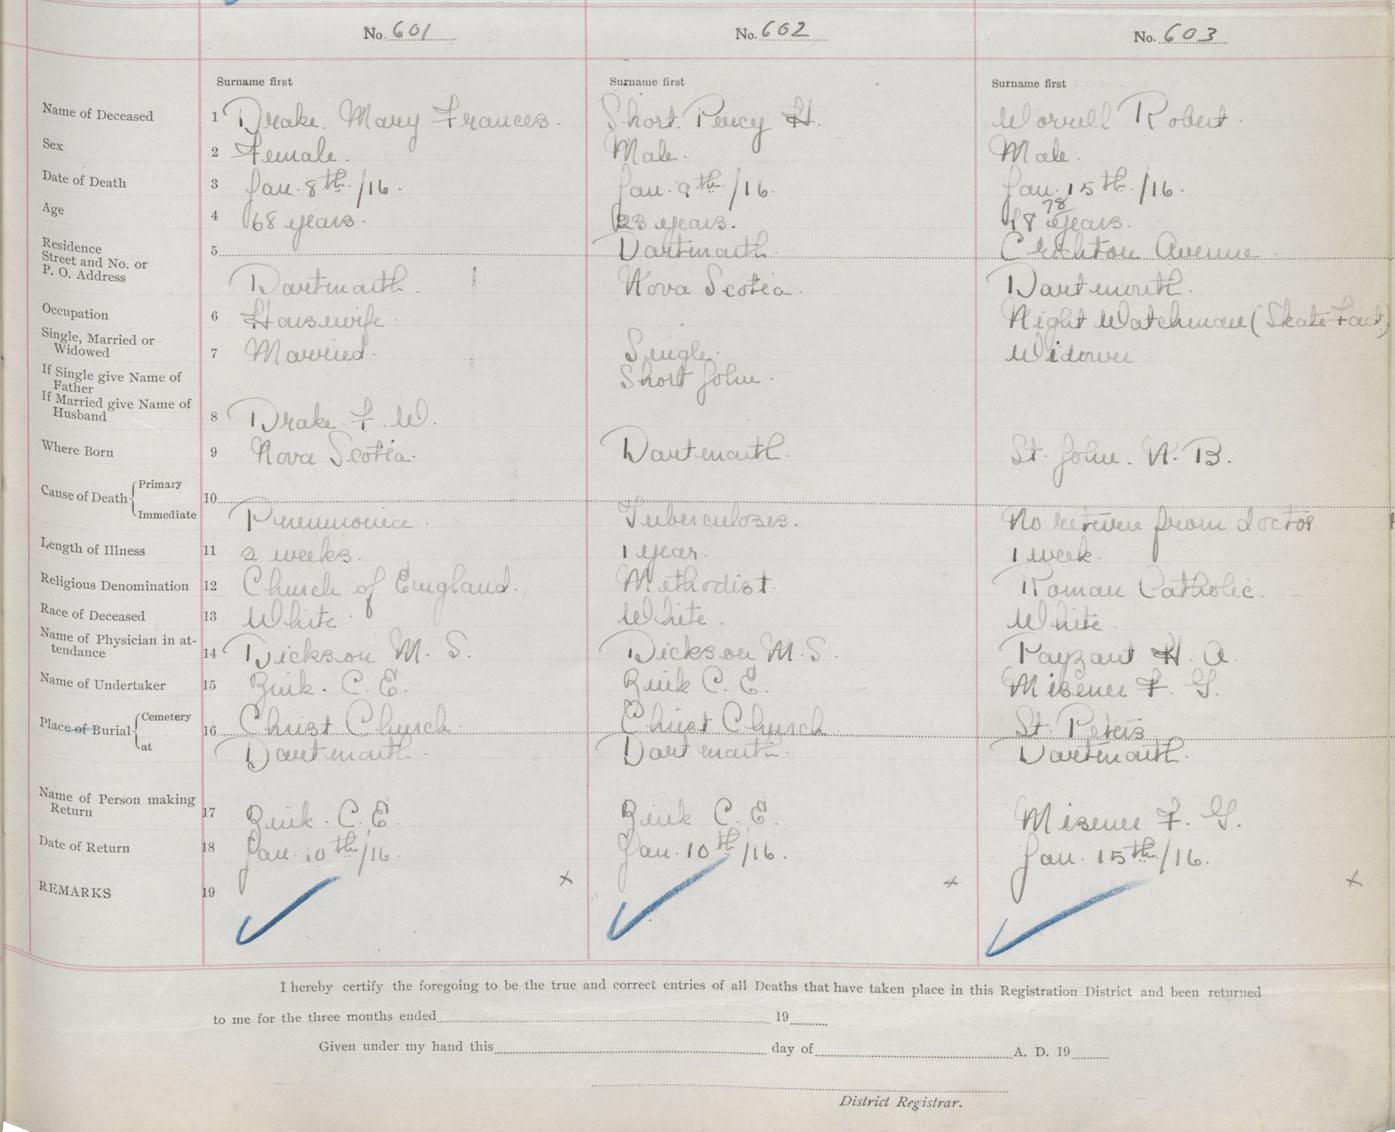 No. 601 No. 602 No. 603
Surname first Surname first Surname first
Name of Deceased 1 Drake. Mary Frances. Short. Percy H. Worrell Robert.
Sex 2 Female. Male. Male.
Date of Death 3 Jan. 8th/16. Jan. 9th/16. Jan. 15th/16.
78
Age 4 68 years. 23 years. 48 years.
Residence 5 Dartmouth. Crichton Avenue.
Street and No. or
P. O. Address Dartmouth. Nova Scotia. Dartmouth.
Occupation 6 Housewife. Night Watchman (Skate Fact.)
Single, Married or
Widowed 7 Married. Single. Widower
If Single give Name of
Father Short John.
If Married give Name of
Husband 8 Drake. F. W.
Where Born 9 Nova Scotia. Dartmouth. St. John. N. B.
Cause of Death Primary 10
Immediate Pneumonia. Tuberculoses. No return from doctor
Length of Illness 11 2 weeks. 1 year. 1 week.
Religious Denomination 12 Church of England. Methodist. Roman Catholic.
Race of Deceased 13 White. White. White.
Name of Physician in at-
tendance 14 Dickson M. S. Dickson M. S. Payzant H. A.
Name of Undertaker 15 Zink. C. E. Zink C. E. Misener F. G.
Place of Burial Cemetery 16 Christ Church. Christ Church. St. Peters
at Dartmouth. Dartmouth. Dartmouth.
Name of Person making
Return 17 Zink. C. E. Zink C. E. Misener F. G.
Date of Return 18 Jan. 10th/16. Jan. 10th/16. Jan. 15th/16.
REMARKS 19 x x x
I hereby certify the foregoing to be the true and correct entries of all Deaths that have taken place in this Registration District and been returned
to me for the three months ended 19
Given under my hand this day of A. D. 19
District Registrar.